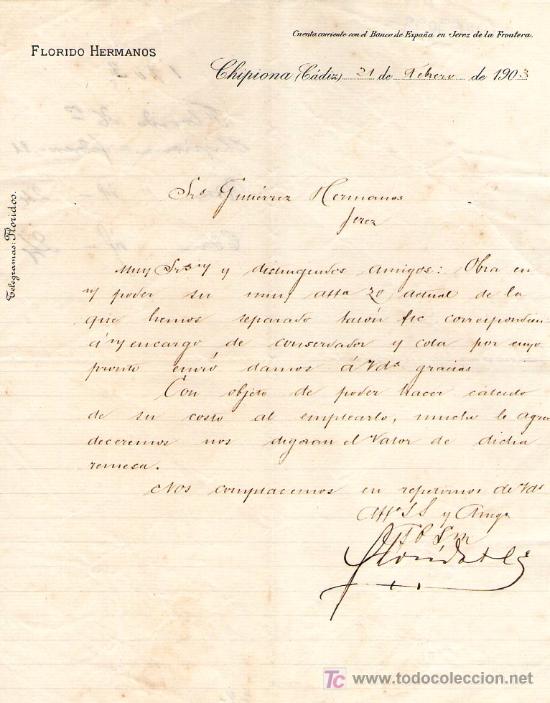 Cuenta corriente con el Banco de España en Jerez de la Frontera.
FLORIDO HERMANOS
Chipiona (Cádiz) 21 de Febrero de 1903
Telegramas: Floridos.
Srs Gutiérrez Hermanos
Jerez
Muy Srs ns y distinguidos amigos: Obra en
n/ poder su muy atta 20 actual de la
que hemos separado talón fc correspondien
á n/ encargo de conservador y cola por cuyo
pronto envio damos á Vds gracias
Con objeto de poder hacer cálculo
de su costo al emplearlo, mucho le agra
deceremos nos digaan el valor de dicha
remesa.
Nos complacemos en repetirnos de Vds
Atts S S y Amigs
TC www.todocoleccion.net